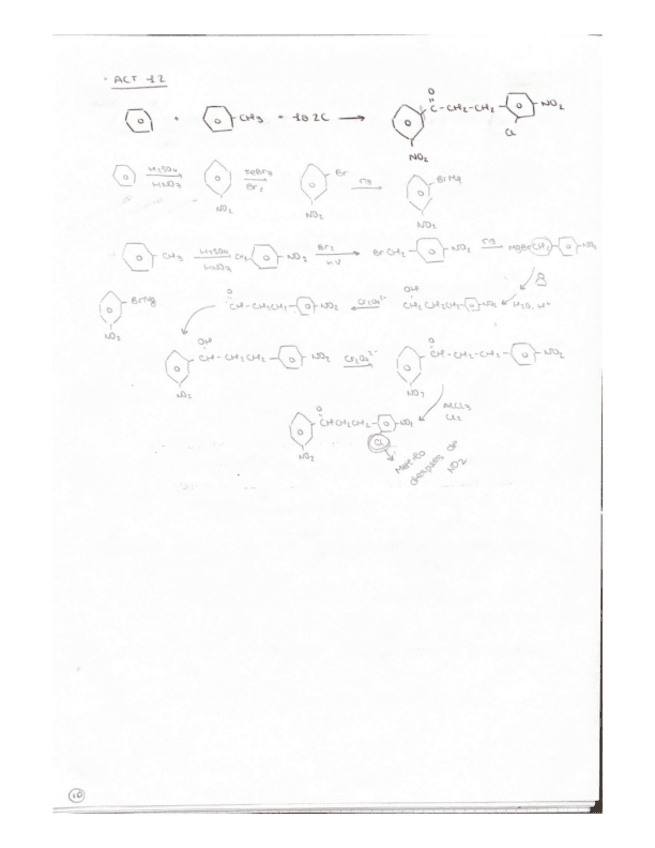 · ACT 12
+ CH3 + 1 o 2C → O C - CH2 - CH2 NO2 Cl NO2
H2SO4 HNO3 NO2 FeBr3 Br2 Br NO2 Mg BrMg NO2
CH3 H2SO4 HNO3 CH3 NO2 Br2 hν BrCH2 NO2 Mg MgBrCH2 NO2
BrMg NO2 O CH-CH2CH2 NO2 Cr2O7²⁻ OH CH2CH2CH2 NO2 H2O, H+
OH CH-CH2CH2 NO2 NO2 Cr2O7²⁻ O CH-CH2-CH2 NO2 NO2
AlCl3
Cl2
O CHCH2CH2 NO2 Cl NO2
Meterlo
despues de
NO2
10